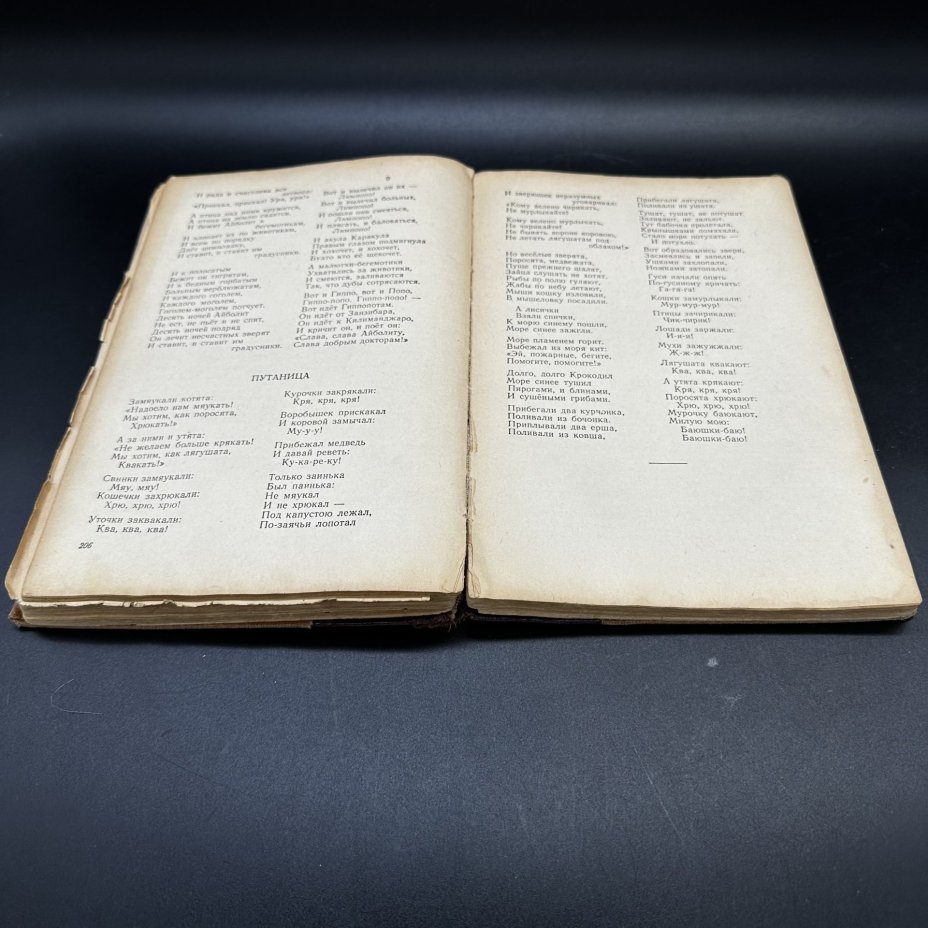 9
И рада и счастлива вся
детвора:
«Приехал, приехал! Ура, ура!»
А птица над ними кружится,
А птица на землю садится.
И бежит Айболит к
бегемотикам,
И хлопает их по животикам,
И всем по порядку
Даёт шоколадку,
И ставит, и ставит им
градусники.
И к полосатым
Бежит он тигрятам,
И к бедным горбатым
Больным верблюжатам,
И каждого гоголем,
Каждого моголем,
Гоголем-моголем потчует.
Десять ночей Айболит
Не ест, не пьёт и не спит,
Десять ночей подряд
Он лечит несчастных зверят
И ставит, и ставит им
градусники.
Вот и вылечил он их —
Лимпопо!
Вот и вылечил больных,
Лимпопо!
И пошли они смеяться,
Лимпопо!
И плясать, и баловаться,
Лимпопо!
И акула Каракула
Правым глазом подмигнула
И хохочет, и хохочет,
Будто кто её щекочет.
А малютки-бегемотики
Ухватились за животики,
И смеются, заливаются
Так, что дубы сотрясаются.
Вот и Гиппо, вот и Попо,
Гиппо-попо, Гиппо-попо! —
Вот идёт Гиппопотам.
Он идёт от Занзибара,
Он идёт к Килиманджаро,
И кричит он, и поёт он:
«Слава, слава Айболиту,
Слава добрым докторам!»
ПУТАНИЦА
Замяукали котята:
«Надоело нам мяукать!
Мы хотим, как поросята,
Хрюкать!»
А за ними и утята:
«Не желаем больше крякать!
Мы хотим, как лягушата,
Квакать!»
Свинки замяукали:
Мяу, мяу!
Кошечки захрюкали:
Хрю, хрю, хрю!
Уточки заквакали:
Ква, ква, ква!
Курочки закрякали:
Кря, кря, кря!
Воробышек прискакал
И коровой замычал:
Му-у-у!
Прибежал медведь
И давай реветь:
Ку-ка-ре-ку!
Только заинька
Был паинька:
Не мяукал
И не хрюкал —
Под капустою лежал,
По-заячьи лопотал
206
И зверюшек неразумных
уговаривал:
«Кому велено чирикать,
Не мурлыкайте!
Кому велено мурлыкать,
Не чирикайте!
Не бывать вороне коровою,
Не летать лягушатам под
облаком!»
Но весёлые зверята,
Поросята, медвежата,
Пуще прежнего шалят,
Зайца слушать не хотят.
Рыбы по полю гуляют,
Жабы по небу летают,
Мыши кошку изловили,
В мышеловку посадили.
А лисички
Взяли спички,
К морю синему пошли,
Море синее зажгли.
Море пламенем горит,
Выбежал из моря кит:
«Эй, пожарные, бегите,
Помогите, помогите!»
Долго, долго Крокодил
Море синее тушил
Пирогами, и блинами,
И сушёными грибами.
Прибегали два курчонка,
Поливали из бочонка.
Приплывали два ерша,
Поливали из ковша,
Прибегали лягушата,
Поливали из ушата.
Тушат, тушат, не потушат,
Заливают, не зальют.
Тут бабочка прилетала,
Крылышками помахала,
Стало море потухать —
И потухло.
Вот обрадовались звери,
Засмеялись и запели,
Ушками захлопали,
Ножками затопали.
Гуси начали опять
По-гусиному кричать:
Га-га-га!
Кошки замурлыкали:
Мур-мур-мур!
Птицы зачирикали:
Чик-чирик!
Лошади заржали:
И-и-и!
Мухи зажужжали:
Ж-ж-ж!
Лягушата квакают:
Ква, ква, ква!
А утята крякают:
Кря, кря, кря!
Поросята хрюкают:
Хрю, хрю, хрю!
Мурочку баюкают,
Милую мою:
Баюшки-баю!
Баюшки-баю!